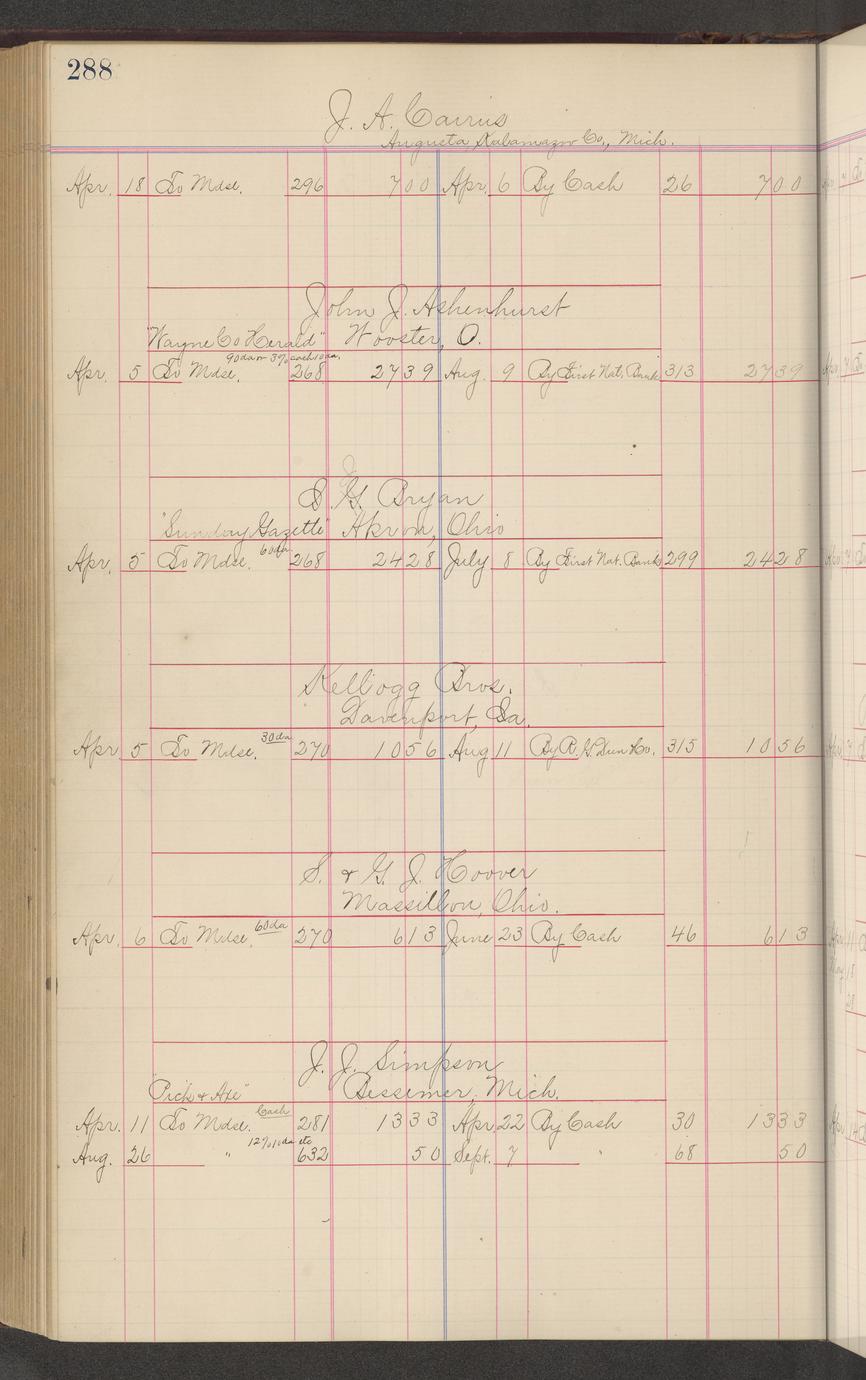 288
J. A. Cairns
Augusta, Kalamazoo Co., Mich.
Apr. 18 To Mdse. 296 7 00 Apr. 6 By Cash 26 7 00
John J. Ashenhurst
"Wayne Co Herald" Wooster, O.
90 da or 3% cash 10 da.
Apr. 5 To Mdse. 268 27 39 Aug. 9 By First Nat. Bank 313 27 39
S. G. Bryan
"Sunday Gazette" Akron, Ohio
Apr. 5 To Mdse. 60 da 268 24 28 July 8 By First Nat. Bank 299 24 28
Kellogg Bros.
Davenport, Ia.
Apr 5 To Mdse. 30 da 270 10 56 Aug 11 By R. G. Dun & Co. 315 10 56
S. & G. J. Hoover
Massillon, Ohio.
Apr. 6 To Mdse. 60 da 270 6 13 June 23 By Cash 46 6 13
J. J. Simpson
"Pick & Axe" Bessemer, Mich.
Apr. 11 To Mdse. Cash 281 13 33 Apr. 22 By Cash 30 13 33
Aug. 26 " 12% 10 da etc 632 50 Sept. 7 " 68 50